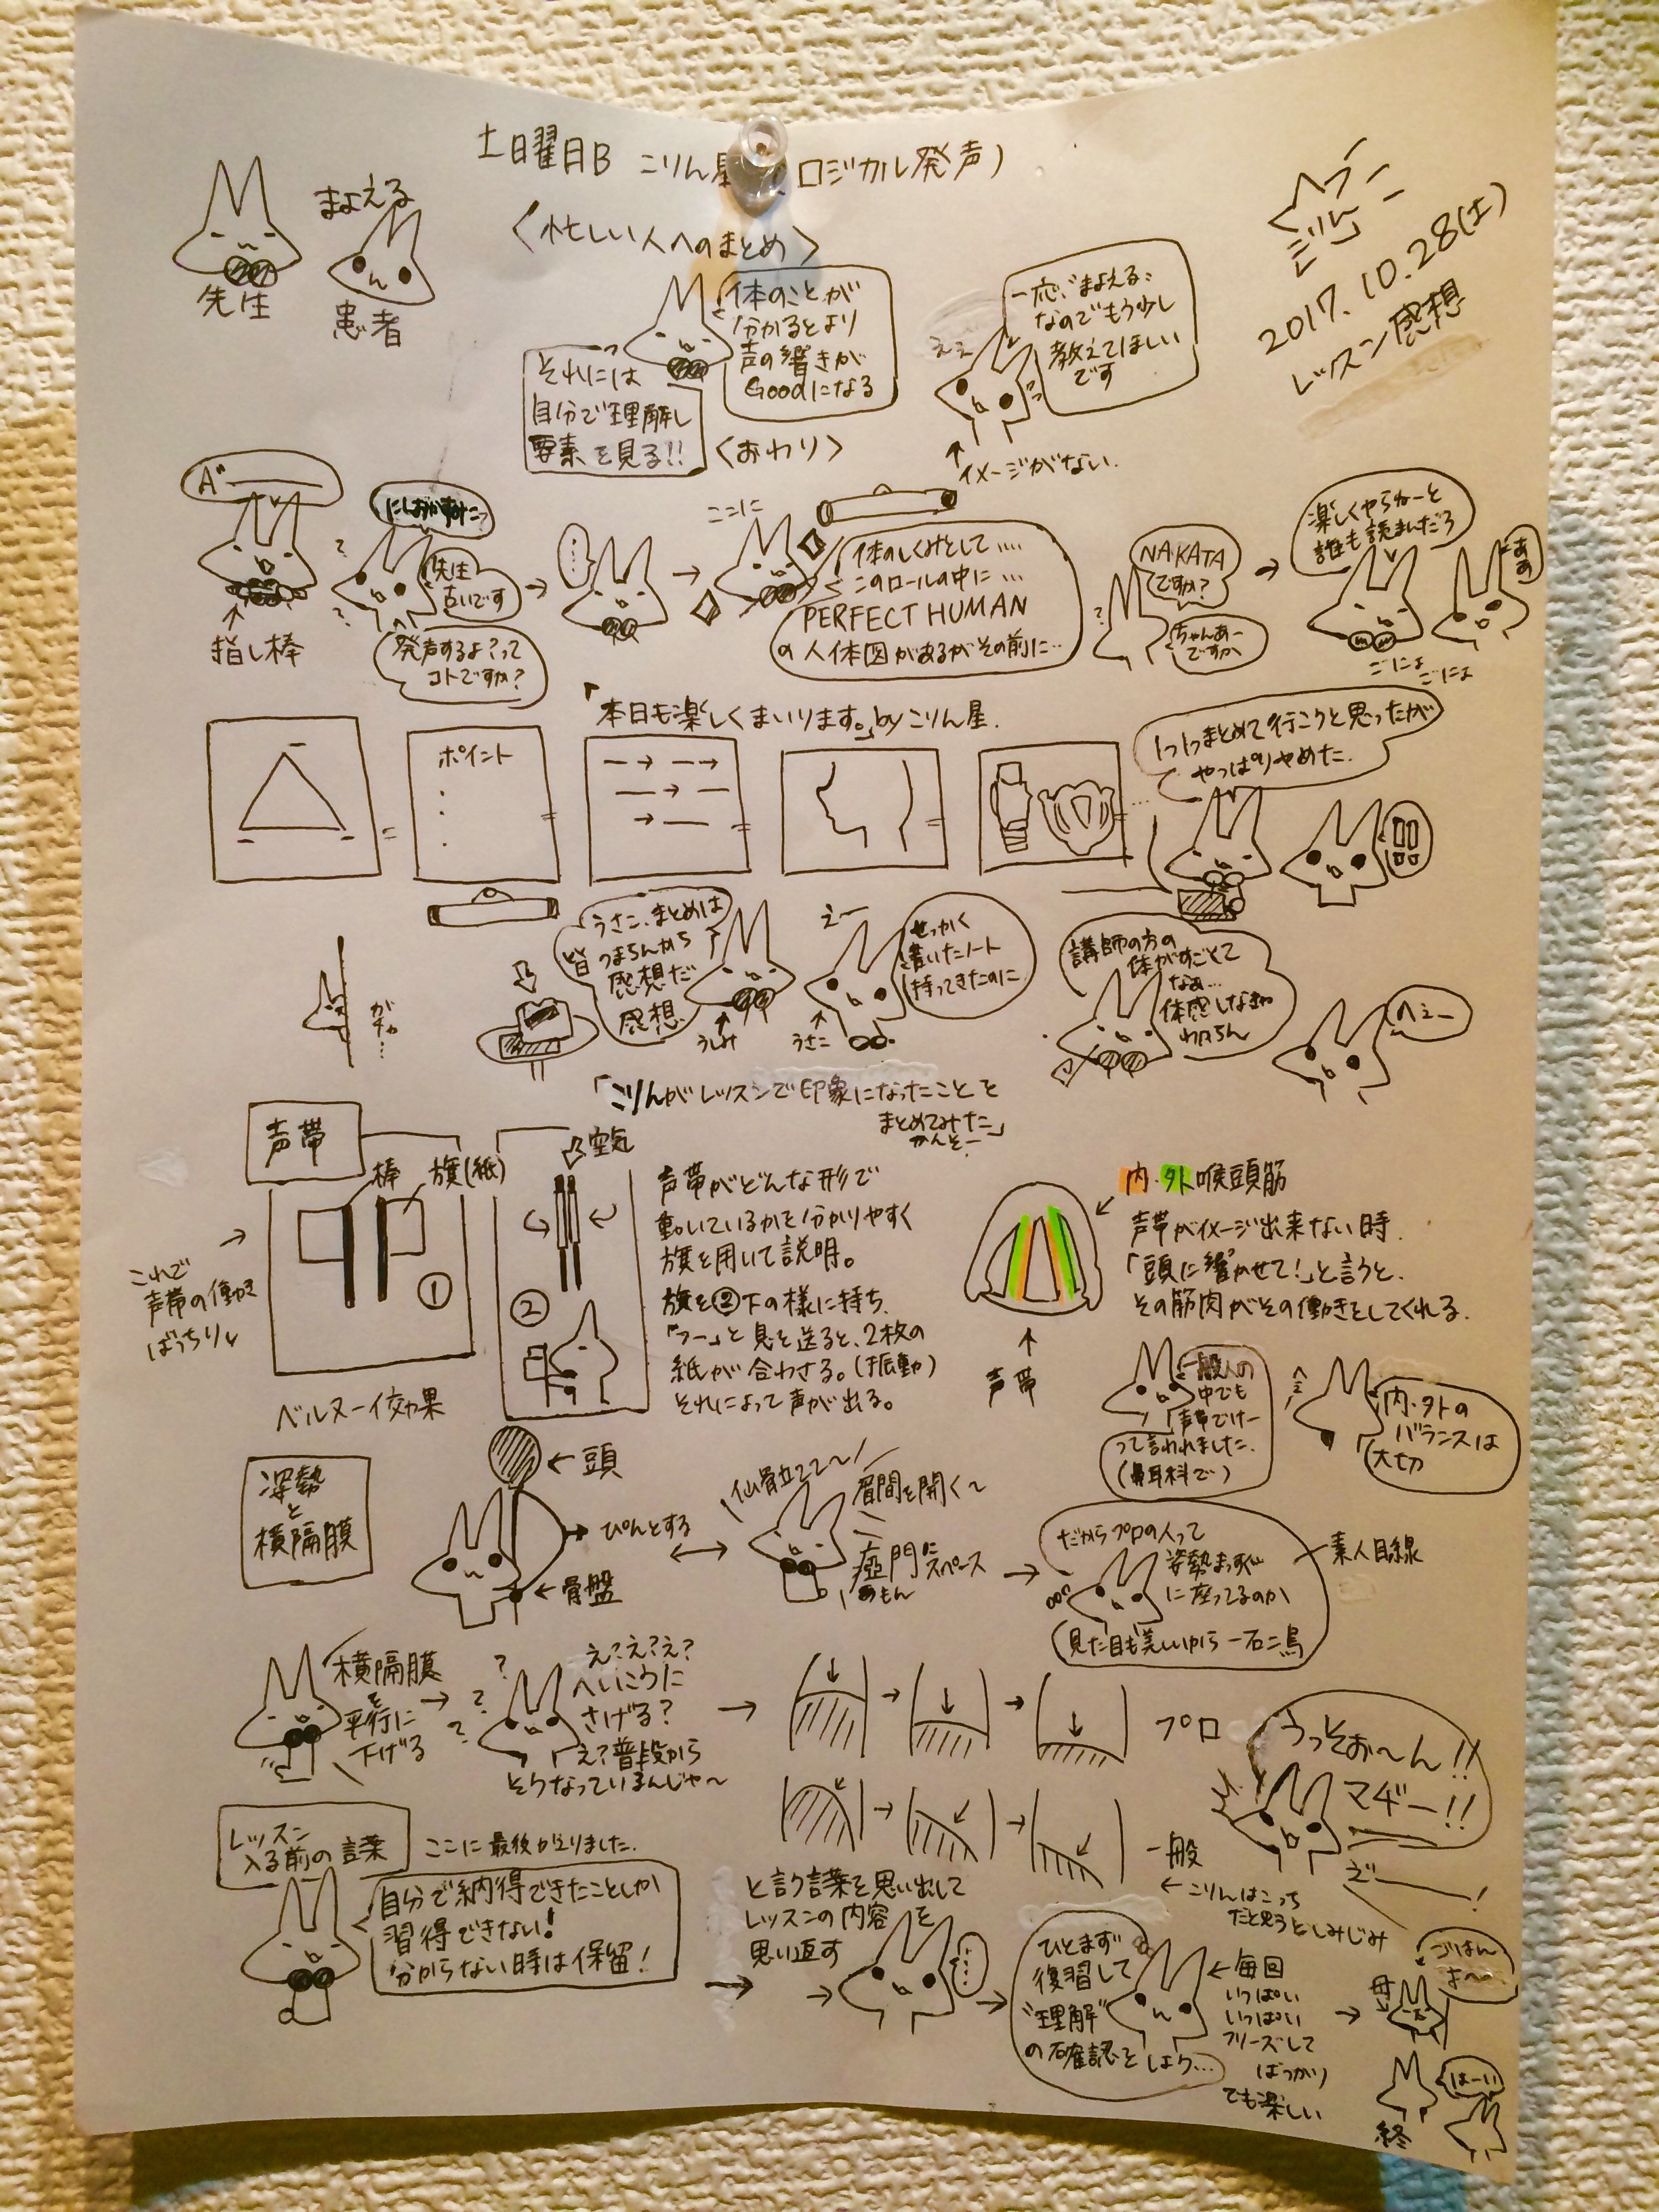 土曜日B こりん星 ロジカル発声)
まよえる
先生
患者
〈忙しい人へのまとめ〉
2017.10.28(土)
レッスン感想
体のことが
分かるとより
声の響きが
Goodになる
それには
自分で理解し
要素を見る!!
〈おわり〉
一応、まよえる、
なのでもう少し
教えてほしい
です
ええ
イメージがない.
A゛
指し棒
先生
古いです
発声するよ?って
コトですか?
ここに
体のしくみとして....
このロールの中に...
PERFECT HUMAN
の人体図があるがその前に...
NAKATA
ですか?
ちゃんあー
ですか
楽しくやらねーと
誰も読まんだろ
ごにょ
ごにょ
「本日も楽しくまいります。」byこりん星.
ポイント
1つ1つまとめて行こうと思ったが
やっぱりやめた.
ガチャ...
うさこ、まとめは
皆つまらんから
感想だ
感想.
うしみ
えー
うさこ
せっかく
書いたノート
持ってきたのに
講師の方の
体がすごとて
なぁ...
体感しなきゃ
わからん
へぇー
「こりんがレッスンで印象になったことを
まとめてみた」
かんそー
声帯
棒
旗(紙)
空気
①
②
これで
声帯の働き
ばっちり
ベルヌーイ効果
声帯がどんな形で
動いているかを分かりやすく
旗を用いて説明。
旗を②下の様に持ち、
「フー」と息を送ると、2枚の
紙が合わさる。(振動)
それによって声が出る。
声帯
内・外喉頭筋
声帯がイメージ出来ない時.
「頭に響かせて!」と言うと、
その筋肉がその働きをしてくれる.
一般人の
中でも
声帯でけー
って言われました.
(鼻耳科で)
内・外の
バランスは
大切
姿勢
と
横隔膜
頭
ぴんとする
骨盤
仙骨立てて〜
眉間を開く〜
瘂門にスペース
あもん
だからプロの人って
姿勢まっすぐ
に座ってるのか
見た目も美しいから一石二鳥
素人目線
横隔膜
を
平行に
下げる
え?え?え?
へいこうに
さげる?
え?普段から
そうなっているんじゃ〜
プロ
一般
うっそぉ〜ん!!
マヂー!!
えー!
こりんはこっち
だと思うとしみじみ
レッスン
入る前の言葉
ここに最後かえりました.
自分で納得できたことしか
習得できない!
分からない時は保留!
と言う言葉を思い出して
レッスンの内容を
思い返す
ひとまず
復習して
"理解"
の確認をしよう...
毎回
いっぱい
いっぱい
フリーズして
ばっかり
でも楽しい
母
ごはん
よ〜
はーい
終